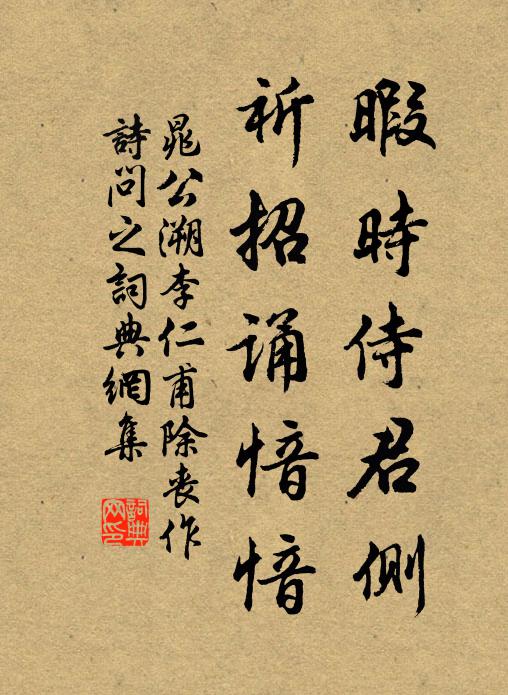 暇時侍君側
祈招誦愔愔
晁公溯李仁甫除喪作
詩問之詞典網集
詞典
网印